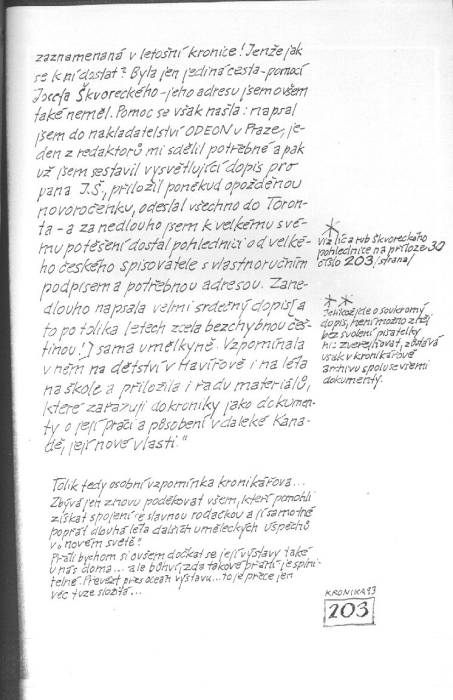 zaznamenaná v letošní kronice! Jenže jak
se k ní dostat? Byla jen jediná cesta - pomocí
Josefa Škvoreckého - jeho adresu jsem ovšem
také neměl. Pomoc se však našla: napsal
jsem do nakladatelství ODEON v Praze, je-
den z redaktorů mi sdělil potřebné a pak
už jsem sestavil vysvětlující dopis pro
pana J.Š., přiložil poněkud opožděnou
novoročenku, odeslal všechno do Toron-
ta - a za nedlouho jsem k velkému své-
mu potěšení dostal pohlednici od velké-
ho českého spisovatele s vlastnoručním
podpisem a potřebnou adresou. Zane-
dlouho napsala velmi srdečný dopis [a
to po tolika letech zcela bezchybnou češ-
tinou!] sama umělkyně. Vzpomínala
v něm na dětství v Havířově i na léta
na škole a přiložila i řadu materiálů,
které zařazuji do kroniky jako dokumen-
ty o její práci a působení v daleké Kana-
dě, její nové vlasti."
*
viz líc a rub Škvoreckého
pohlednice na příloze 30
číslo 203/strana/
**
Jelikož jde o soukromý
dopis, není možno
bez svolení pisatelky
zveřejňovat, zůstává
však v kronikářově
archivu spolu se všemi
dokumenty.
Tolik tedy osobní vzpomínka kronikářova...
Zbývá jen znovu poděkovat všem, kteří pomohli
získat spojení se slavnou rodačkou a jí samotné
popřát dlouhá léta dalších uměleckých úspěchů
v "novém světě".
Přáli bychom si ovšem dočkat se její výstavy také
u nás doma... ale bůhví, zda takové přání je splni-
telné. Převézt přes oceán výstavu... to je přece jen
věc tuze složitá...
KRONIKA 93
203